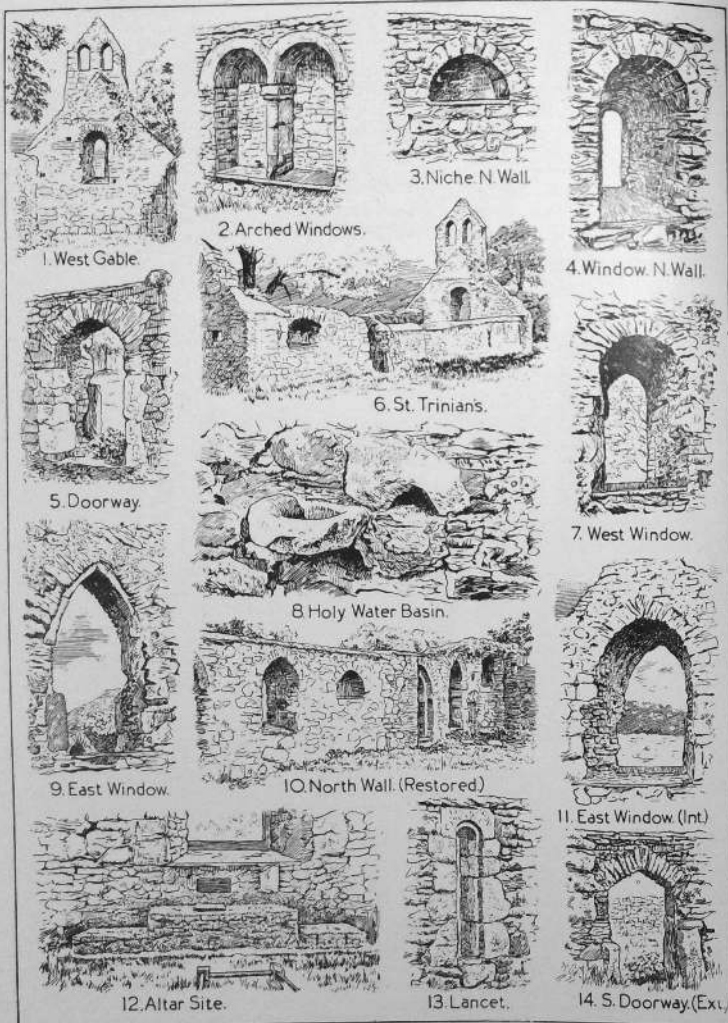 1. West Gable.
2. Arched Windows.
3. Niche N. Wall.
4. Window. N. Wall.
5. Doorway.
6. St. Trinian's.
7. West Window.
8 Holy Water Basin.
9. East Window.
10. North Wall. (Restored)
11. East Window. (Int.)
12. Altar Site.
13. Lancet.
14. S. Doorway. (Ext.